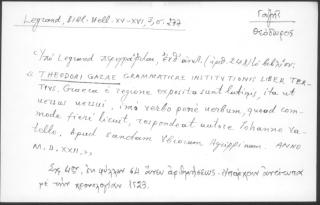 Legrand, Bibl. Hell. XV-XVI, 3, σ. 277
Γαζῆ
Θεόδωρος
Legrand περιγράφει,
THEODORI GAZAE GRAMMATICAE INSTITUTIONIS LIBER TER-
TIVS. Graeca è regione expositis latinis, ita ut
versus versui, imò verbo penè verbum, quoad com-
mode fieri licuit, respondeat autore Iohanne Va-
tello. Apud sanctam Ubiorum Agrippinam. ANNO
M. D. XXII.
Εἰς 4ον, ἐκ φύλλων 64 ἄνευ ἀριθμήσεως. Ὑπάρχουν ἀντίτυπα
με τὴν χρονολογίαν 1523.